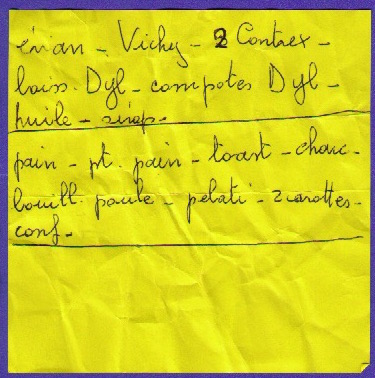 évian - Vichy - 2 Contrex -
boiss. Dyl - compotes Dyl -
huile - sirop -
pain - pt. pain - toast - charc -
bouill. poule - pelati - 2 carottes -
conf -